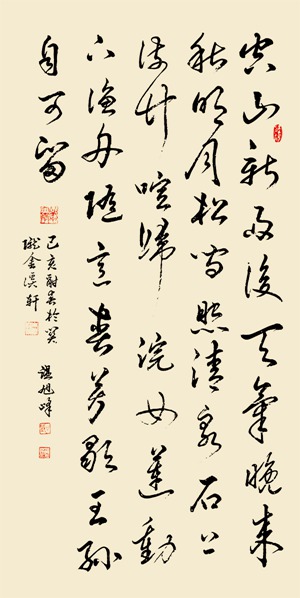 空山新雨後天氣晚來
秋明月松間照清泉石上
流竹喧歸浣女蓮動
下漁舟隨意春芳歇王孫
自可留
己亥 於
軒
旭峰